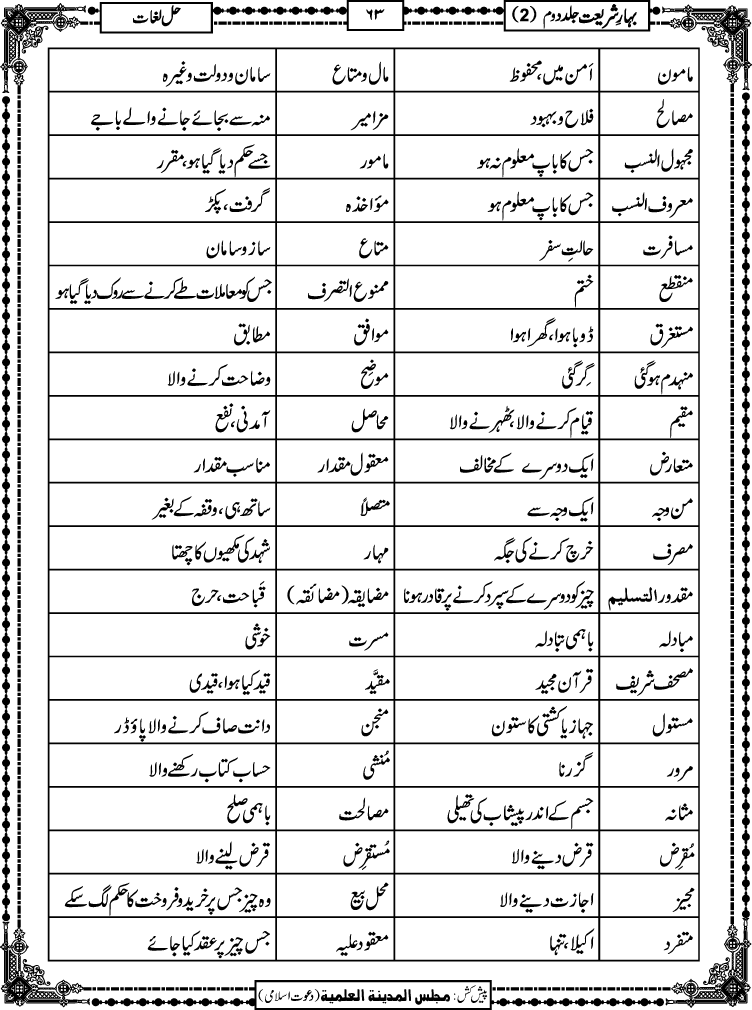 بہارِ شریعت جلد دوم (2) ۶۳ حل لغات
مامون اَمن میں، محفوظ مال و متاع سامان و دولت وغیرہ
مصالح فلاح و بہبود مزامیر منہ سے بجائے جانے والے باجے
مجہول النسب جس کا باپ معلوم نہ ہو مامور جسے حکم دیا گیا ہو، مقرر
معروف النسب جس کا باپ معلوم ہو مؤاخذہ گرفت، پکڑ
مسافرت حالتِ سفر متاع ساز و سامان
منقطع ختم ممنوع التصرف جس کو معاملات طے کرنے سے روک دیا گیا ہو
مستغرق ڈوبا ہوا، گھرا ہوا موافق مطابق
منہدم ہو گئی گِر گئی موضِح وضاحت کرنے والا
مقیم قیام کرنے والا، ٹھہرنے والا محاصل آمدنی، نفع
متعارض ایک دوسرے کے مخالف معقول مقدار مناسب مقدار
من وجہ ایک وجہ سے متصلاً ساتھ ہی، وقفہ کے بغیر
مصرف خرچ کرنے کی جگہ مہار شہد کی مکھیوں کا چھتا
مقدور التسلیم چیز کو دوسرے کے سپرد کرنے پر قادر ہونا مضایقہ (مضائقہ) قَباحت، حرج
مبادلہ باہمی تبادلہ مسرت خوشی
مصحف شریف قرآن مجید مقیَّد قید کیا ہوا، قیدی
مستول جہاز یا کشتی کا ستون منجن دانت صاف کرنے والا پاؤڈر
مرور گزرنا مُنشی حساب کتاب رکھنے والا
مثانہ جسم کے اندر پیشاب کی تھیلی مصالحت باہمی صلح
مُقرِض قرض دینے والا مُستقرِض قرض لینے والا
مجیز اجازت دینے والا محل بیع وہ چیز جس پر خرید و فروخت کا حکم لگ سکے
متفرد اکیلا، تنہا معقود علیہ جس چیز پر عقد کیا جائے
پیش کش: مجلس المدینۃ العلمیۃ (دعوت اسلامی)